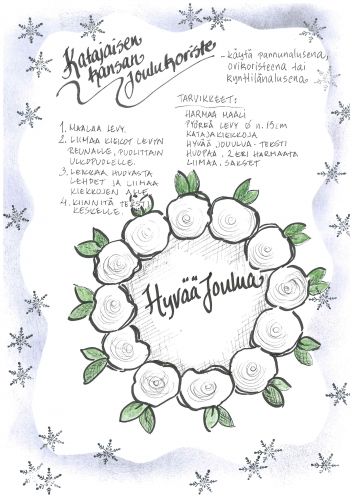 Katajaisen
kansan
Joulukoriste
- käytä pannunalusena,
ovikoristeena tai
kynttilänalusena.
TARVIKKEET:
HARMAA MAALI
PYÖREÄ LEVY Ø n. 15cm
KATAJAKIEKKOJA
HYVÄÄ JOULUA- TEKSTI
HUOPAA, 2 ERI HARMAATA
LIIMAA, SAKSET
1. MAALAA LEVY.
2. LIIMAA KIEKOT LEVYN
REUNALLE, PUOLITTAIN
ULKOPUOLELLE.
3. LEIKKAA HUOVASTA
LEHDET JA LIIMAA
KIEKKOJEN ALLE.
4. KIINNITÄ
KESKELLE.
Hyvää Joulua